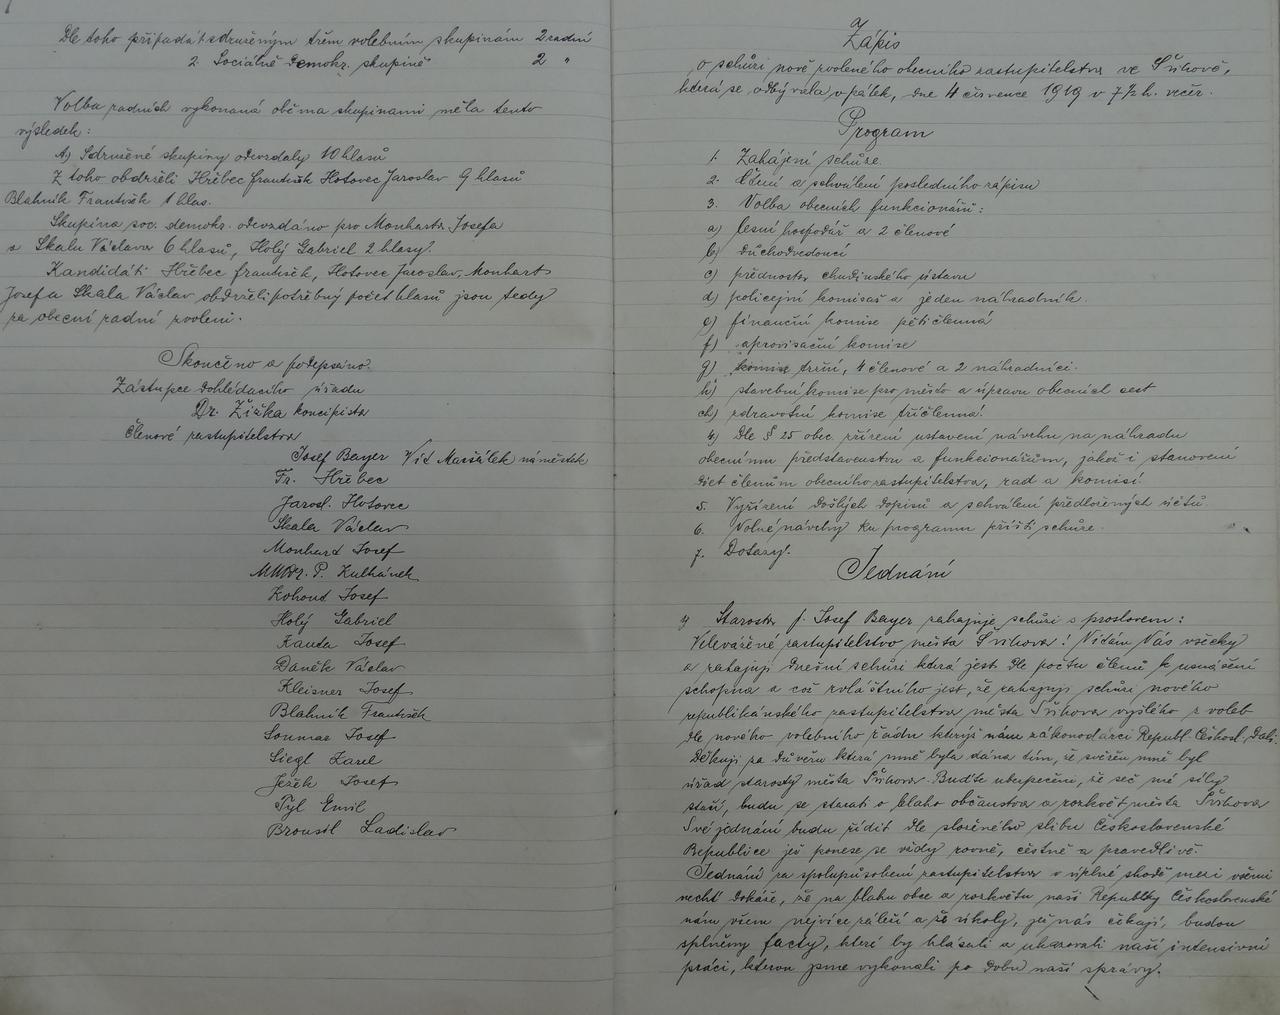 Dle toho připadá sdruženým třem volebním skupinám 2 radní
2. Sociálně Demokr. skupině 2 "
Volba radních vykonaná oběma skupinami měla tento
výsledek:
A) Sdružené skupiny odevzdaly 10 hlasů
Z toho obdrželi Hřebec František Hotovec Jaroslav 9 hlasů
Blahník František 1 hlas.
Skupina soc. demokr. odevzdáno pro Monharta Josefa
a Skalu Václava 6 hlasů, Holý Gabriel 2 hlasy.
Kandidáti Hřebec František, Hotovec Jaroslav, Monhart
Josef a Skala Václav obdrželi potřebný počet hlasů jsou tedy
za obecní radní zvoleni.
Skončeno a podepsáno.
Zástupce dohlédacího úřadu
Dr. Žižka koncipista
Členové zastupitelstva
Josef Bayer Vít Maršálek náměstek
Fr. Hřebec
Jarosl. Hotovec
Skala Václav
Monhard Josef
MUDr. P. Kulhánek
Kohout Josef
Holý Gabriel
Kanda Josef
Daněk Václav
Kleisner Josef
Blahník František
Soumar Josef
Siegl Karel
Ježek Josef
Tyl Emil
Brousil Ladislav
Zápis
o schůzi nově zvoleného obecního zastupitelstva ve Švihově,
která se odbývala v pátek, dne 4 července 1919 v 7½ h. večer.
Program
1. Zahájení schůze.
2. Čtení a schválení posledního zápisu
3. Volba obecních funkcionářů:
a) lesní hospodář a 2 členové
b) důchodvedoucí
c) přednosta chudinského ústavu
d) policejní komisař a jeden náhradník.
e) finanční komise pětičlenná
f) aprovisační komise
g) komise tržní, 4 členové a 2 náhradníci.
h) stavební komise pro město a úpravu obecních cest
ch) zdravotní komise tříčlenná.
4) Dle § 25 obec. zřízení ustavení návrhu na náhradu
obecnímu představenstvu a funkcionářům, jakož i stanovení
diet členům obecního zastupitelstva, rad a komisí.
5. Vyřízení došlých dopisů a schválení předložených účtů.
6. Volné návrhy ku programu příští schůze.
7. Dotazy.
Jednání
1) Starosta p. Josef Bayer zahajuje schůzi s proslovem:
Velevážené zastupitelstvo města Švihova! Vítám Vás všecky
a zahajuji dnešní schůzi která jest dle počtu členů k usnášení
schopna a což zvláštního jest, že zahajuji schůzi nového
republikánského zastupitelstva města Švihova vyšlého z voleb
dle nového volebního řádu kterýž nám zákonodárci Republ. Českosl. dali.
Děkuji za důvěru která mně byla dána tím, že svěřen mně byl
úřad starosty města Švihova. Buďte ubezpečeni, že seč mé síly
stačí, budu se starati o blaho občanstva a rozkvět města Švihova
Své jednání budu řídit dle složeného slibu Československé
Republice jež ponese se vždy rovně, čestně a pravedlivě.
Jednání za spolupůsobení zastupitelstva v úplné shodě mezi všemi
nechť dokáže, že na blahu obce a rozkvětu naší Republiky Československé
nám všem nejvíce záleží a že úkoly, jež nás čekají, budou
splněny facty, které by hlásali a ukazovali naši intensivní
práci, kterou jsme vykonali po dobu naší správy.